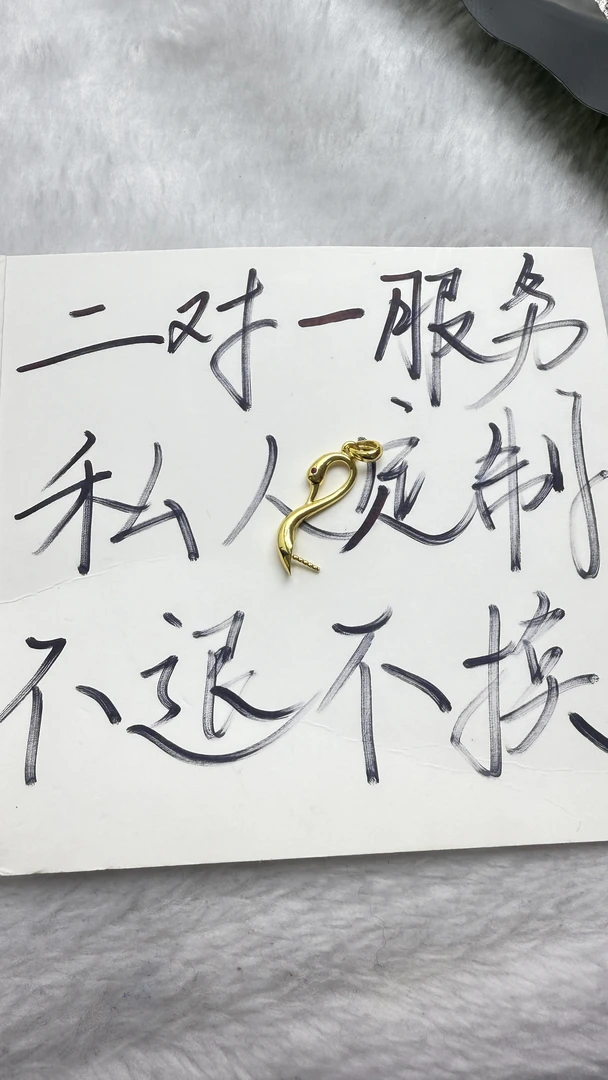 二对一服务
私人定制
不退不换